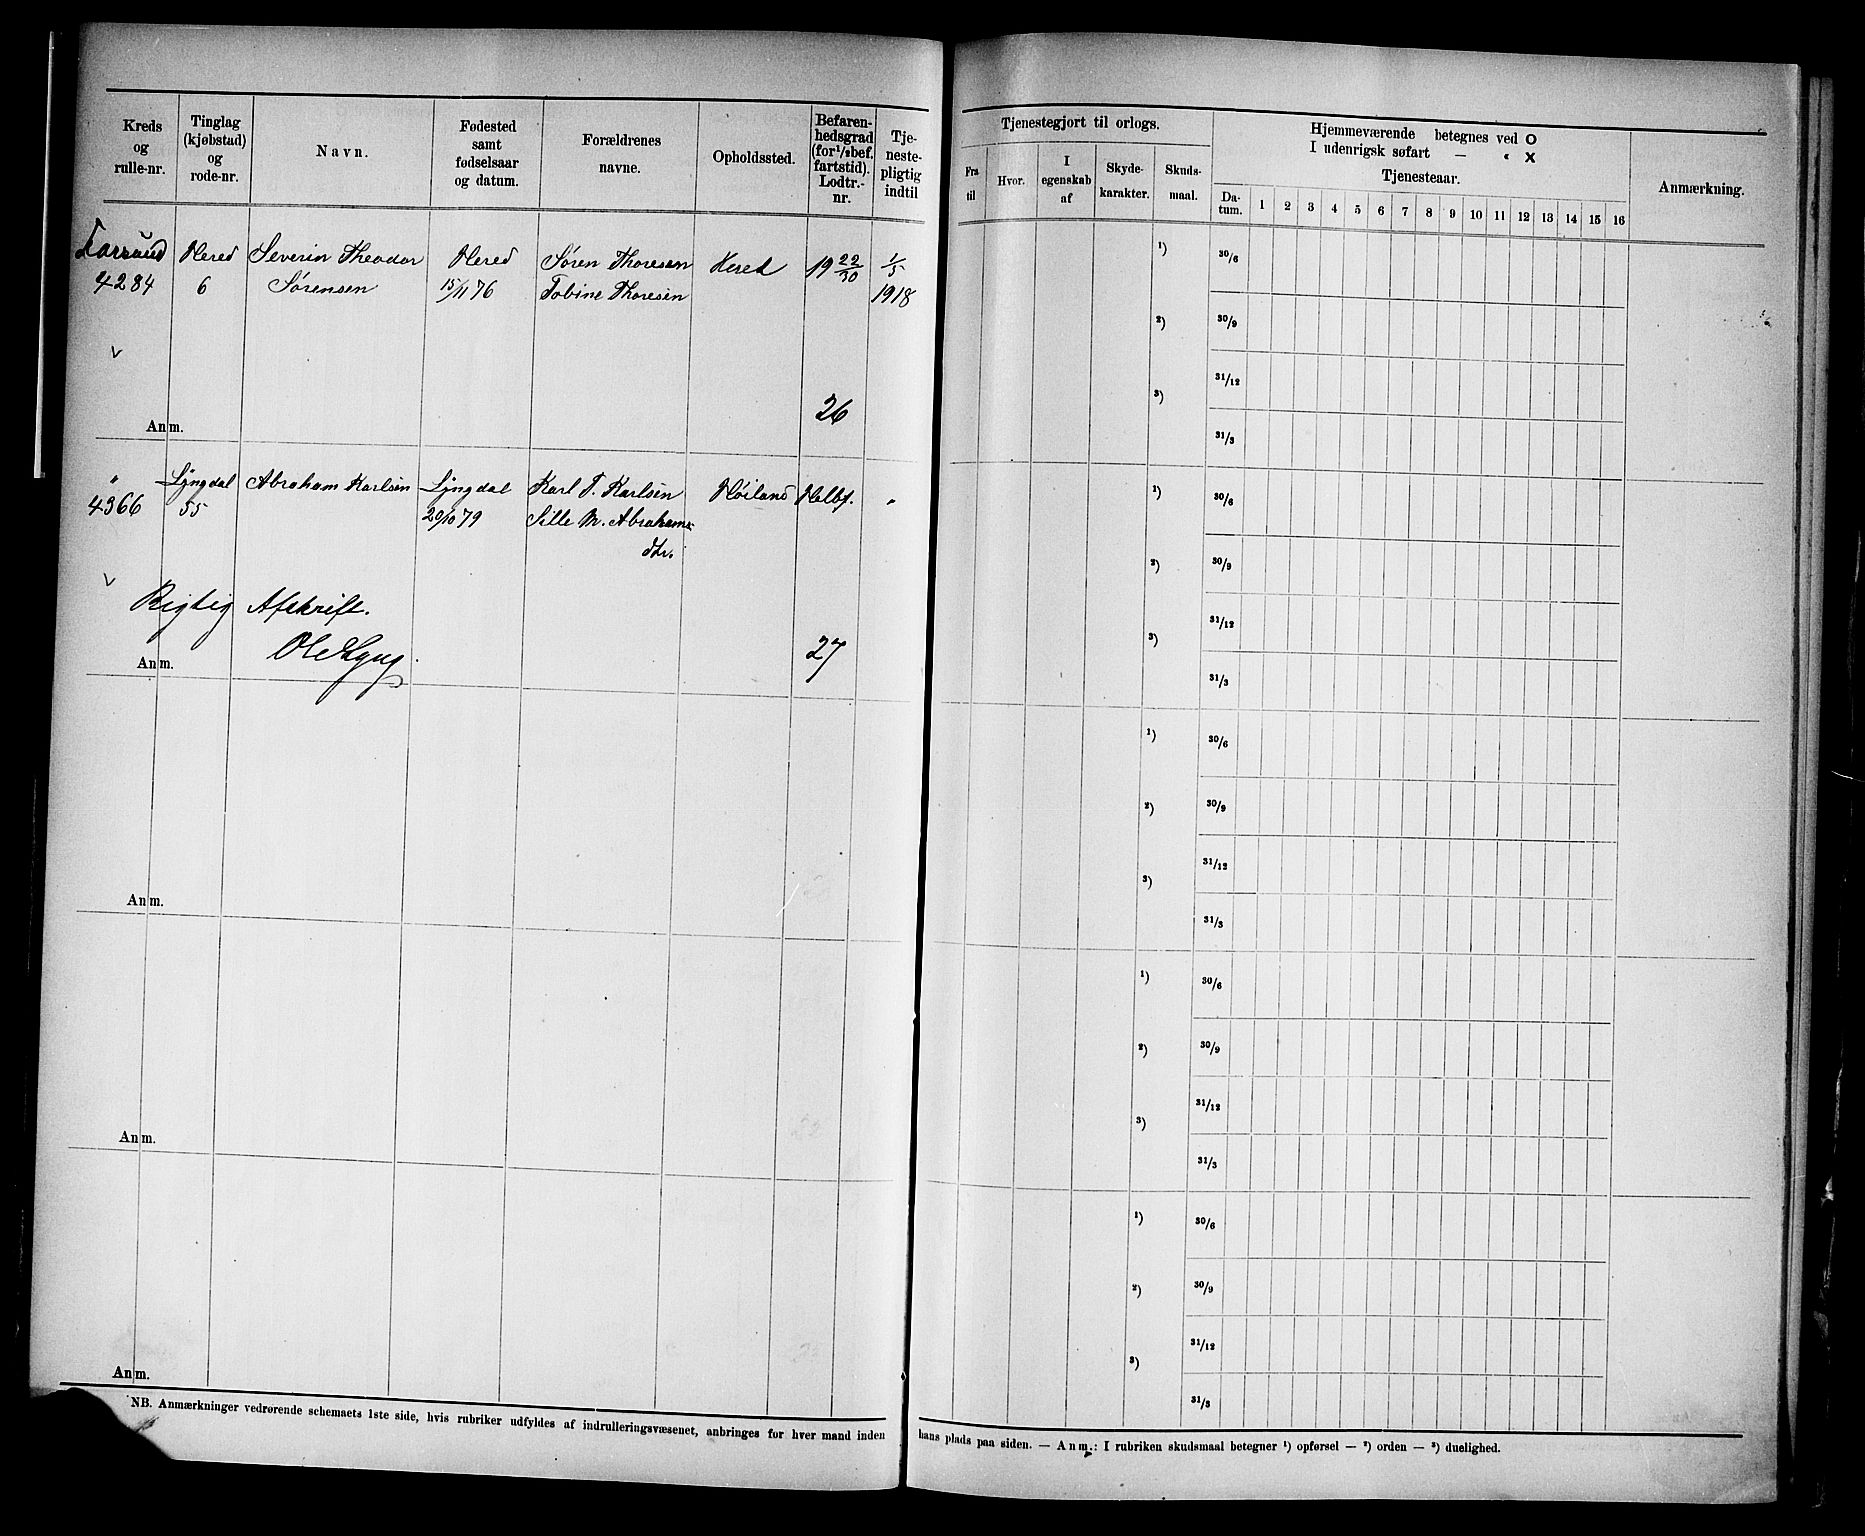 Kreds og rulle-nr.
Tinglag (kjøbstad) og rode-nr.
Navn.
Fødested samt fødselsaar og datum.
Forældrenes navne.
Opholdssted.
Befaren-hedsgrad (for 1/2 bef. fartstid). Lodtr.-nr.
Tje-neste-pligtig indtil
Tjenestegjort til orlogs.
Fra til
Hvor.
I egenskab af
Skyde-karakter.
Skuds-maal.
Hjemmeværende betegnes ved O
I udenrigsk søfart — " X
Tjenesteaar.
Da-tum. 1 2 3 4 5 6 7 8 9 10 11 12 13 14 15 16
Anmærkning.
Farsund Hered Severin Theodor Hered Søren Thoresen Hered 19 22/30 1/5
4284 6 Sørensen 15/11 76 Tobine Thoresen 1918
26
Anm.
1) 30/6
2) 30/9
31/12
3)
31/3
" Lyngdal Abraham Karlsen Lyngdal Karl T. Karlsen Høiland Helbf. "
4366 55 20/10 79 Sille M. Abrahams-
dtr.
Rigtig Afskrift.
27
Anm.
1) 30/6
2) 30/9
31/12
3)
31/3
Anm.
1) 30/6
2) 30/9
31/12
3)
31/3
Anm.
1) 30/6
2) 30/9
31/12
3)
31/3
Anm.
1) 30/6
2) 30/9
31/12
3)
31/3
NB. Anmærkninger vedrørende schemaets 1ste side, hvis rubriker udfyldes af indrulleringsvæsenet, anbringes for hver mand inden hans plads paa siden. — Anm.: I rubriken skudsmaal betegner 1) opførsel — 2) orden — 3) duelighed.